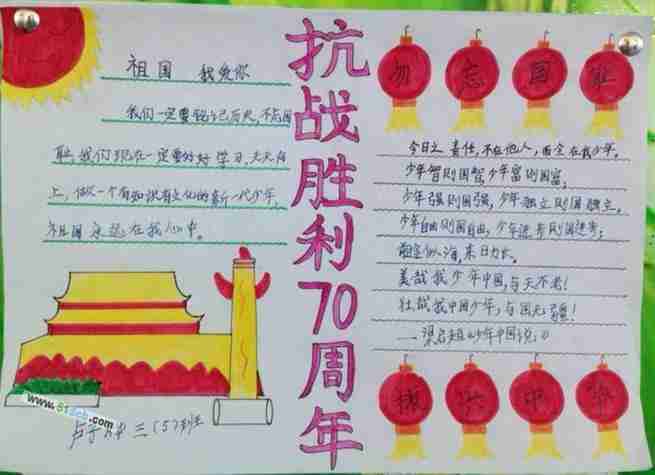 祖国 我爱你
我们一定要铭记历史,不忘国
耻,我们现在一定要好好学习,天天向
上,做一个有知识有文化的新一代少年,
祖国永远在我心中。
抗战胜利70周年
勿忘国耻
今日之责任,不在他人,而全在我少年。
少年智则国智少年富则国富,
少年强则国强,少年独立则国独立。
少年自由则国自由,少年进步则国进步;
前途似海,来日方长。
美哉我少年中国,与天不老!
壮哉我中国少年,与国无疆!
——梁启超《少年中国说》
振兴中华
www.61ertong.com
三(5)班